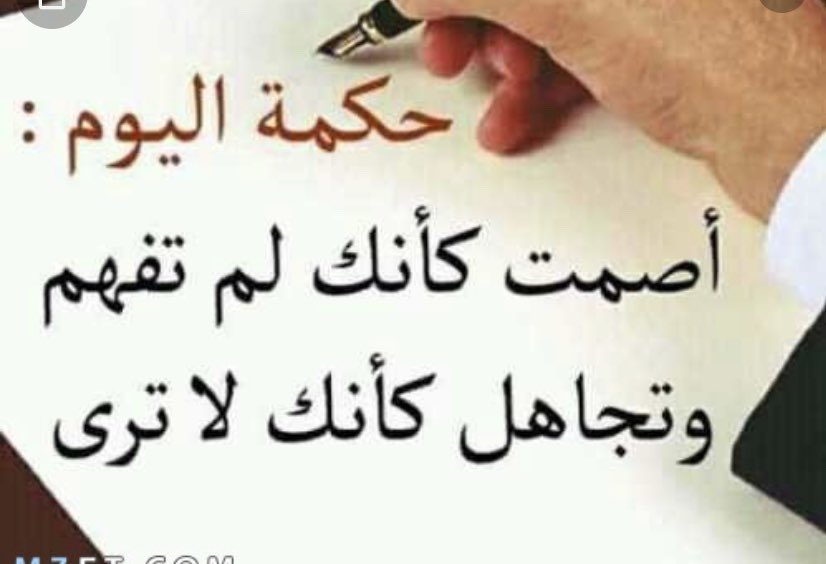 حكمة اليوم :
أصمت كأنك لم تفهم
وتجاهل كأنك لا ترى